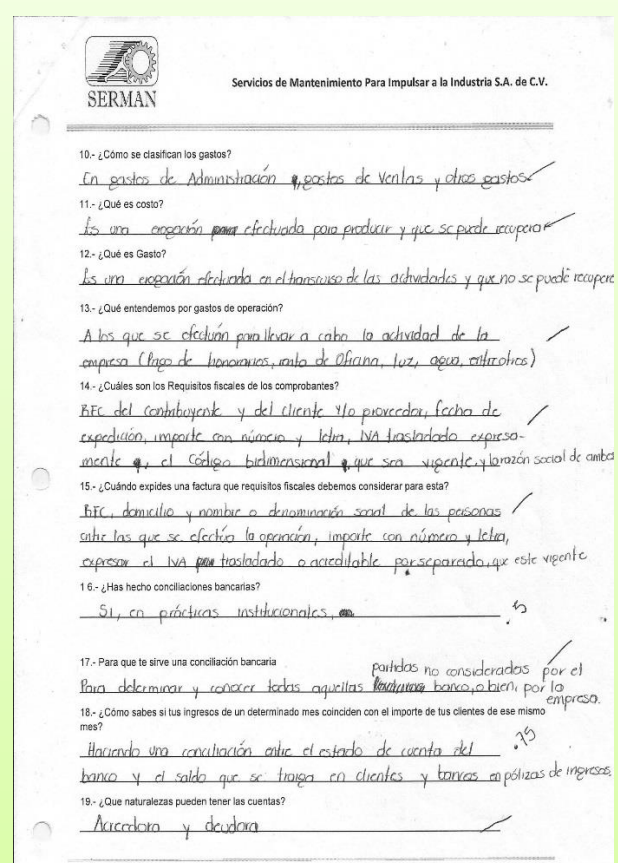 SERMAN
Servicios de Mantenimiento Para Impulsar a la Industria S.A. de C.V.
10.- ¿Cómo se clasifican los gastos?
En gastos de Administración , gastos de Ventas y otros gastos.
11.- ¿Qué es costo?
Es una erogación efectuada para producir y que se puede recuperar
12.- ¿Qué es Gasto?
Es una erogación efectuada en el transcurso de las actividades y que no se puede recupere
13.- ¿Qué entendemos por gastos de operación?
A los que se efectúan para llevar a cabo la actividad de la
empresa (Pago de honorarios, renta de Oficina, luz, agua, entre otros)
14.- ¿Cuáles son los Requisitos fiscales de los comprobantes?
RFC del Contribuyente y del cliente y/o proveedor, fecha de
expedición, importe con número y letra, IVA trasladado expresa-
mente , el Código bidimensional , que sea vigente, y la razón social de amba
15.- ¿Cuándo expides una factura que requisitos fiscales debemos considerar para esta?
RFC, domicilio y nombre o denominación social de las personas
entre las que se efectúa la operación, importe con número y letra,
expresar el IVA trasladado o acreditable por separado, que este vigente
16.- ¿Has hecho conciliaciones bancarias?
Si, en prácticas institucionales, .5
17.- Para que te sirve una conciliación bancaria
partidas no consideradas por el
Para determinar y conocer todas aquellas banco, o bien, por la
empresa.
18.- ¿Cómo sabes si tus ingresos de un determinado mes coinciden con el importe de tus clientes de ese mismo
mes?
Haciendo una conciliación entre el estado de cuenta del .75
banco y el saldo que se traiga en clientes y bancos en pólizas de ingresos.
19.- ¿Que naturalezas pueden tener las cuentas?
Acreedora y deudora